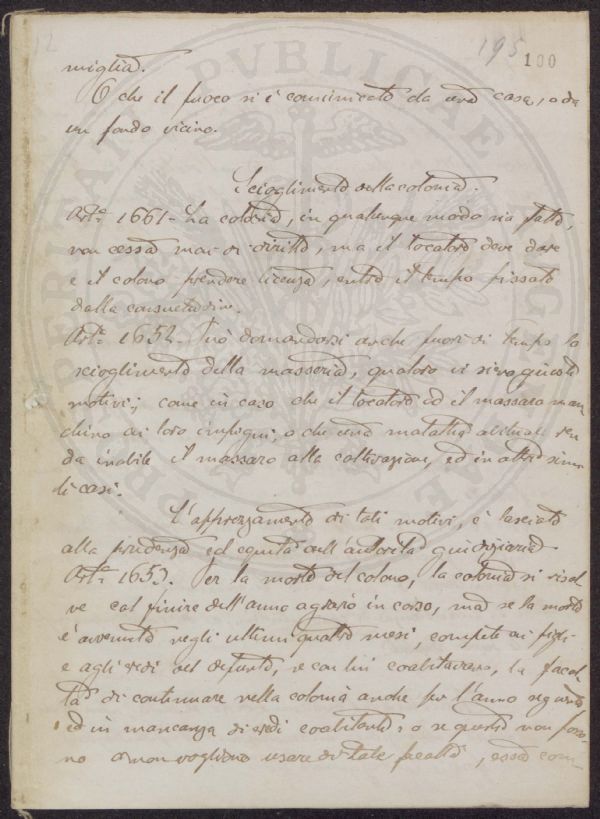 12
195 100
miglia.
O che il fuoco si è comunicato da una casa, o da
un fondo vicino.
Scioglimento della colonia.
Art.º 1661 - La colonia, in qualunque modo sia fatta,
non cessa mai di diritto, ma il locatore deve dare
e il colono prendere licenza, entro il tempo fissato
dalla consuetudine.
Art.º 1652 - Può domandarsi anche fuori di tempo lo
scioglimento della masseria, qualora vi sieno giusti
motivi; come in caso che il locatore od il massaro man-
chino ai loro impegni, o che una malattia abituale ren
da inabile il massaro alla coltivazione, ed in altri simi
li casi.
L'apprezzamento di tali motivi, è lasciato
alla prudenza ed equità dell'autorità giudiziaria
Art.º 1653. Per la morte del colono, la colonia si risol
ve col finire dell'anno agrario in corso, ma se la morte
è avvenuta negli ultimi quattro mesi, compete ai figli
e agli eredi del defunto, se con lui coabitavano, la facol
tà di continuare nella colonia anche per l'anno seguente
ed in mancanza di eredi coabitanti, o se questi non pos
no o non vogliono usare di tale facoltà, essa com-